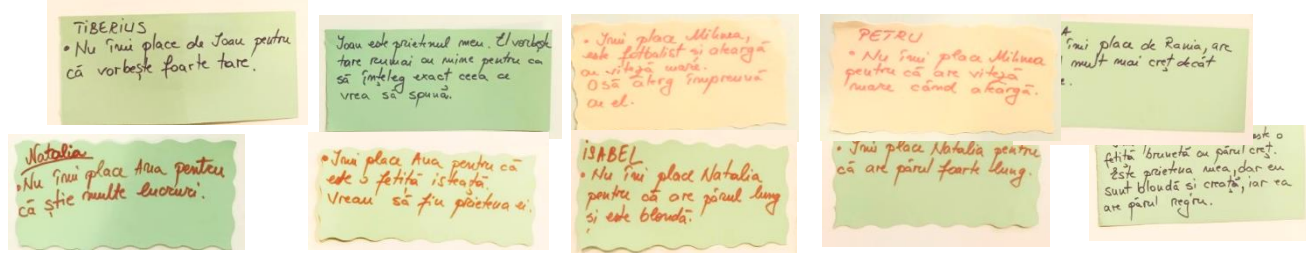 TIBERIUS
• Nu îmi place de Ioan pentru
că vorbește foarte tare.
Ioan este prietenul meu. El vorbește
tare numai cu mine pentru ca
să înțeleg exact ceea ce
vrea să spună.
• Îmi place Milinea,
este fotbalist și aleargă
cu viteză mare.
O să alerg împreună
cu el.
PETRU
• Nu îmi place Milinea
pentru că are viteză
mare când aleargă.
A
îmi place de Rania, are
mult mai creț decât
e.
Natalia
• Nu îmi place Ana pentru
că știe multe lucruri.
• Îmi place Ana pentru că
este o fetiță isteață.
Vreau să fiu prietena ei.
ISABEL
• Nu îmi place Natalia
pentru că are părul lung
și este blondă.
• Îmi place Natalia pentru
că are părul foarte lung.
este o
fetiță brunetă cu părul creț.
Este prietena mea, dar eu
sunt blondă și creață, iar ea
are părul negru.